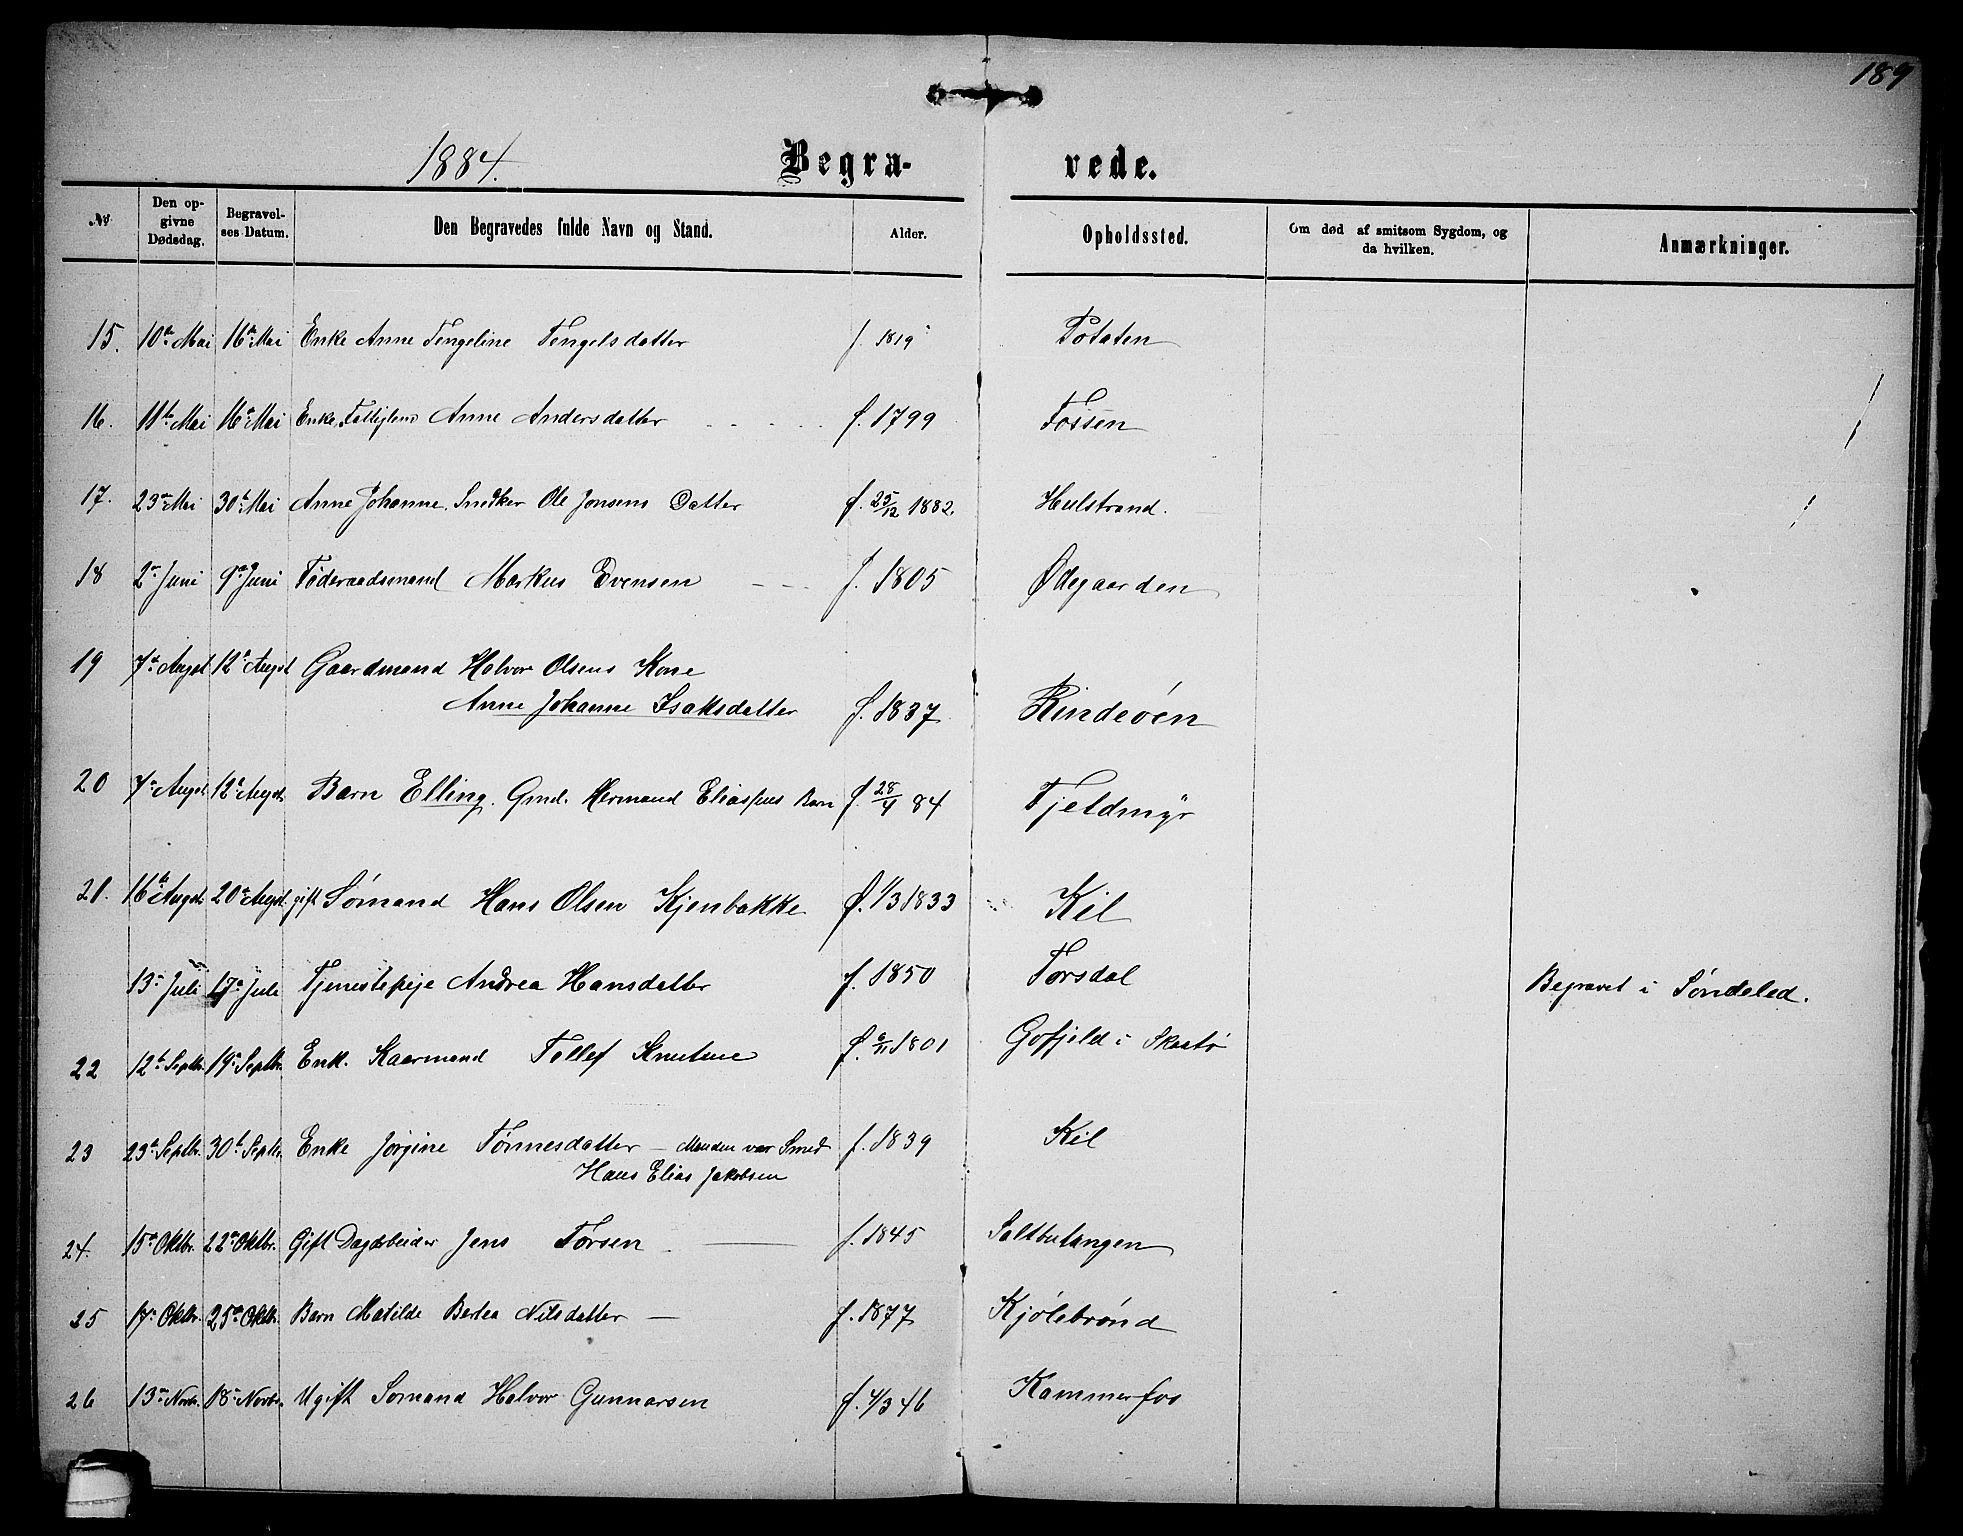 189
1884.
Begra- vede.
№ Den op-givne Dødsdag. Begravel-ses Datum. Den Begravedes fulde Navn og Stand. Alder. Opholdssted. Om død af smitsom Sygdom, og da hvilken. Anmærkninger.
15. 10de Mai 16de Mai Enke Anne Tengeline Tengelsdatter f. 1819 Potaten
16. 11te Mai 16de Mai Enke, Fattiglem Anne Andersdatter f. 1799 Fossen
17. 23de Mai 30te Mai Anne Johanne, Snedker Ole Jonsens Datter f. 25/12 1882. Hulstrand.
18 2den Juni 9de Juni Føderaadsmand Markus Evensen f. 1805 Ødegaarden
19 7de Augst 12te Augst Gaardmand Halvor Olsens Kone
Anne Johanne Isaksdatter f. 1837 Rindeøen
20 7de Augst 12te Augst Barn Elling. Gmd. Hermand Eliassens Barn f. 28/4 84 Fjeldmyr
21. 16de Augst 20de Augst gift Sømand Hans Olsen Kjenbakke f. 1/3 1833 Kil
13de Juli 17de Juli Tjenestepige Andrea Hansdatter f. 1850 Torsdal Begravet i Søndeled.
22 12te Septbr. 19de Septbr. Enk. Kaarmand Tollef Knutsen f. 1801 Gofjeld i Skaatø
23 23de Septbr. 30te Septbr. Enke Jørgine Tønnesdatter — Manden var Smed f. 1839 Kil
Hans Elias Jakobsen
24. 15de Oktbr. 22de Oktbr. Gift Dagarbeider Jens Torsen f. 1845 Saltbutangen
25 17de Oktbr. 25de Oktbr. Barn Matilde Bertea Nilsdatter — f. 1877 Kjølebrønd
26 13de Novbr. 18de Novbr. Ugift Sømand Halvor Gunnarsen f. 4/3 46 Kammerfos